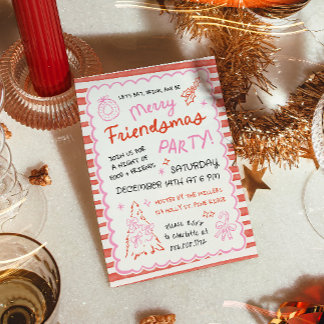 LET'S EAT, DRINK, AND BE
Merry
Friendsmas
PARTY!
JOIN US FOR
A NIGHT OF
FOOD & FRIENDS
SATURDAY,
DECEMBER 14TH AT 6 PM
HOSTED BY THE MILLERS
123 HOLLY ST. PINE RIDGE
Please RSVP
to Charlotte at